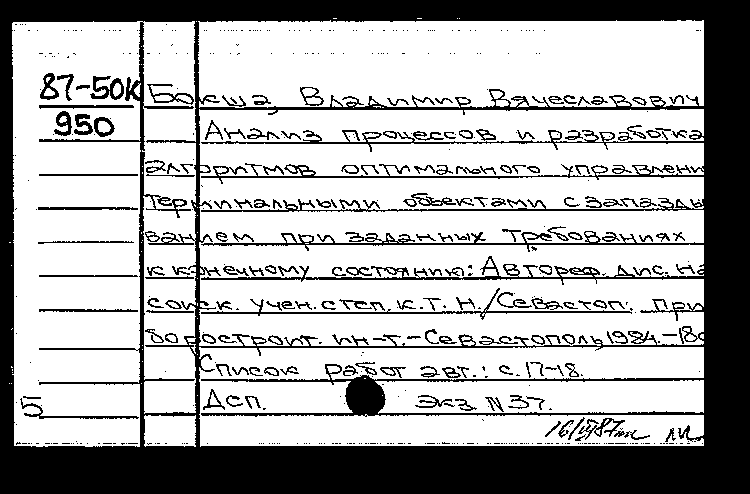 87-50К Бокша, Владимир Вячеславович
950 Анализ процессов и разработка
алгоритмов оптимального управлени
терминальными объектами с запазды
ванием при заданных требованиях
к конечному состоянию: Автореф. дис. на
соиск. учен. степ. к.т.н./Севастоп. при
боростроит. ин-т.-Севастополь, 1984.-18с
Список работ авт.: с.17-18.
5 Дсп. Экз. N 37.